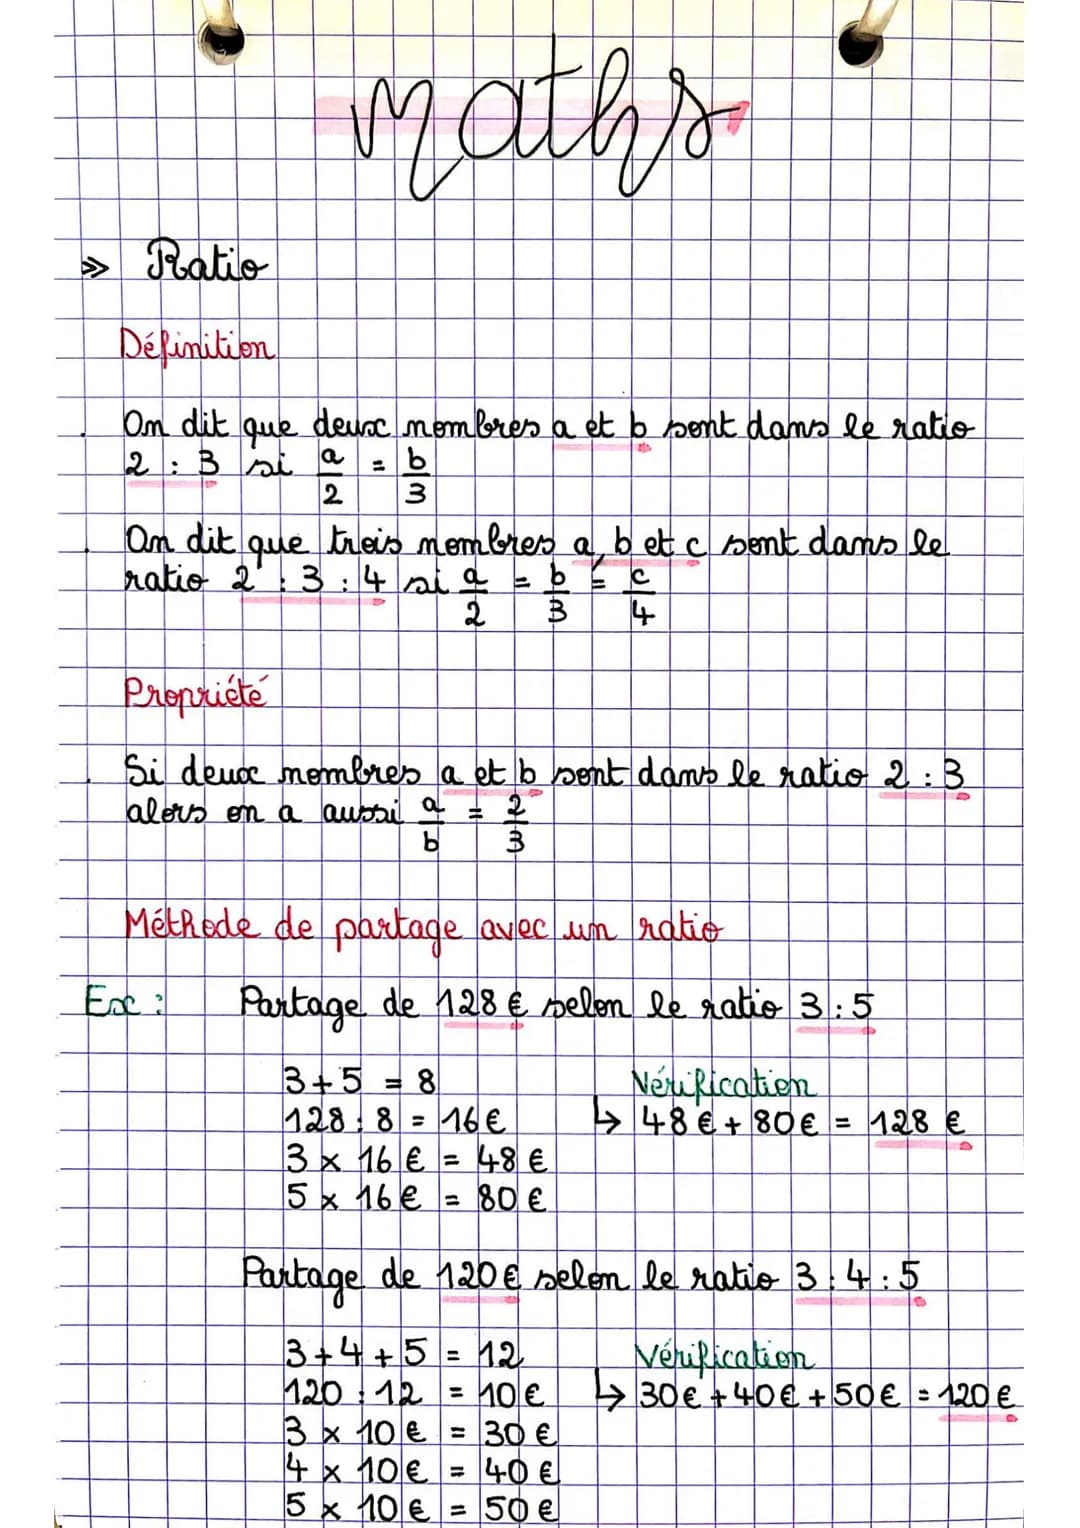 maths
>> Ratio
Définition
On dit que deux nombres a et b sont dans le ratio
2 : 3 si a/2 = b/3
On dit que trois nombres a, b et c sont dans le
ratio 2 : 3 : 4 si a/2 = b/3 = c/4
Propriété
Si deux nombres a et b sont dans le ratio 2 : 3
alors on a aussi a/b = 2/3
Méthode de partage avec un ratio
Ex : Partage de 128 € selon le ratio 3 : 5
3 + 5 = 8
128 : 8 = 16 €
3 x 16 € = 48 €
5 x 16 € = 80 €
Vérification
↳ 48 € + 80 € = 128 €
Partage de 120 € selon le ratio 3 : 4 : 5
3 + 4 + 5 = 12
120 : 12 = 10 €
3 x 10 € = 30 €
4 x 10 € = 40 €
5 x 10 € = 50 €
Vérification
↳ 30 € + 40 € + 50 € = 120 €